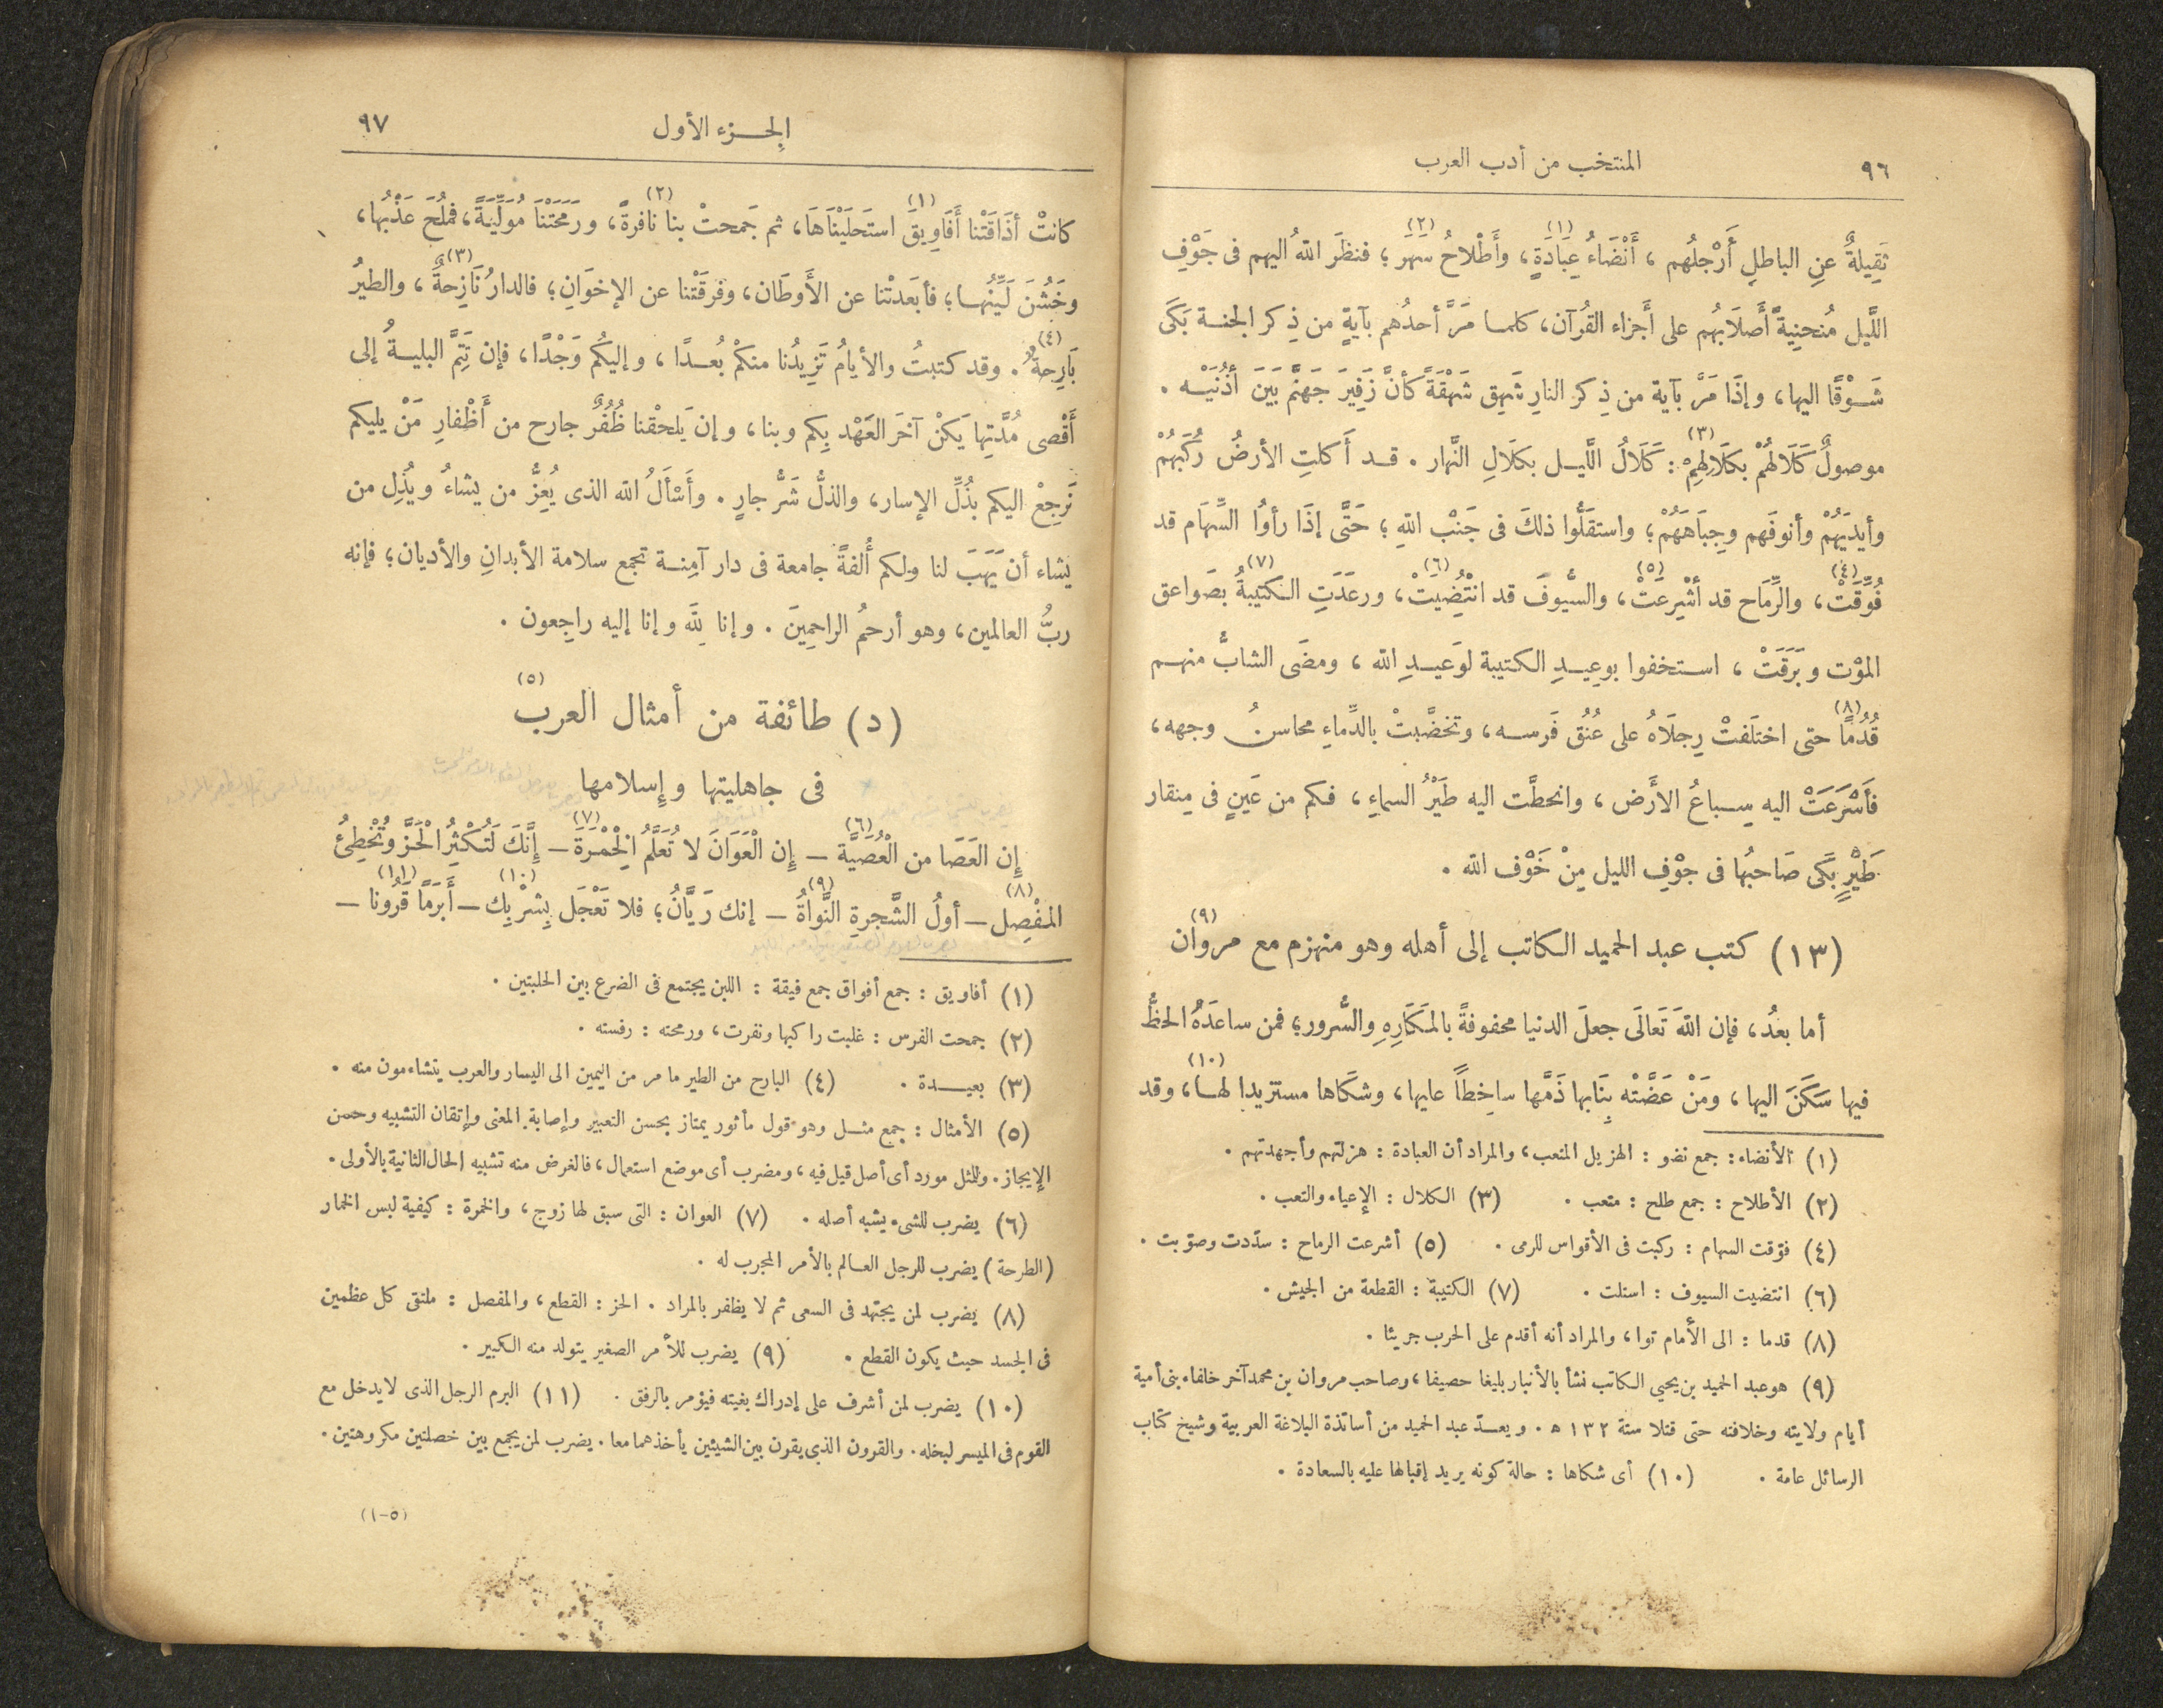 ٩٦
المنتخب من أدب العرب
ثَقِيلةٌ عنِ الباطلِ أَرْجلُهم ، أَنْضَاءُ (١) عِبَادَةٍ ، وأَطْلاحُ (٢) سَهَر ؛ فنظرَ اللهُ اليهم فى جَوْفِ
اللَّيل مُنحنِيةً أَصلَابُهم على أَجزاء القُرآن ، كلما مَرَّ أحدُهم بآيةٍ من ذِكر الجنة بَكَى
شَوْقًا اليها ، وإذَا مَرَّ بآية من ذِكر النارِ شَهِق شَهْقَةً كأنَّ زَفِيرَ جَهنَّم بَيَنَ أذُنَيْه .
موصولٌ كَلَالُهُمْ بكَلَالِهِمْ (٣) : كَلَالُ اللَّيل بكَلَالِ النَّهار . قد أَكلتِ الأرضُ رُكَبَهُمْ
وأيديَهُمْ وأنوفَهم وجِبَاهَهُمْ ؛ واستقَلُّوا ذلكَ فى جَنْب اللهِ ؛ حَتَّى إذَا رأوُا السِّهَام قد
فُوِّقَتْ (٤) ، والرِّمَاح قد أُشْرِعَتْ (٥) ، والسُّيوفَ قد انْتُضِيَتْ (٦) ، ورعَدَتِ الكتيبةُ (٧) بصَواعق
الموْت وبَرَقَتْ ، استخفوا بوعِيدِ الكتيبة لوَعيدِ الله ، ومضَى الشابُّ منهم
قُدُمًا (٨) حتى اختلَفتْ رِجلَاهُ على عُنُق فَرسه ، وتخضَّبتْ بالدِّماءِ محاسنُ وجهه ،
فأَسْرَعَتْ اليه سِباعُ الأَرض ، وانحطَّت اليه طَيْرُ السماءِ ، فكم من عَينٍ فى مِنقار
طَيْرٍ بَكَى صَاحبُها فى جوْفِ الليل مِنْ خَوْف الله .
(١٣) كتب عبد الحميد الكاتب إلى أهله وهو منهزم مع مروان (٩)
أما بعدُ ، فإن اللهَ تَعالَى جعلَ الدنيا محفوفةً بالمَكَارِهِ والسُّرور ؛ فمن ساعدَهُ الحظُّ
فيها سَكَنَ اليها ، ومَنْ عَضَّتْه بِنَابها ذَمَّها ساخِطاً عليها ، وشكَاها مستزيدا لها (١٠) ، وقد
(١) الأنضاء : جمع نضو : الهزيل المتعب ، والمراد أن العبادة : هزلتهم وأجهدتهم .
(٢) الأطلاح : جمع طلح : متعب . (٣) الكلال : الإعياء والتعب .
(٤) فوّقت السهام : ركبت فى الأقواس للرمى . (٥) أشرعت الرماح : سدّدت وصوّبت .
(٦) انتضيت السيوف : استلت . (٧) الكتيبة : القطعة من الجيش .
(٨) قدما : الى الأمام توا ، والمراد أنه أقدم على الحرب جريئا .
(٩) هو عبد الحميد بن يحيي الكاتب نشأ بالأنبار بليغا حصيفا ، وصاحب مروان بن محمد آخر خلفاء بنى أمية
أيام ولايته وخلافته حتى قتلا سنة ١٣٢ ه . ويعدّ عبد الحميد من أساتذة البلاغة العربية وشيخ كتّاب
الرسائل عامة . (١٠) أى شكاها : حالة كونه يريد إقبالها عليه بالسعادة .
الجزء الأول
٩٧
كانتْ أذَاقَتْنا أَفَاوِيقَ (١) استَحلَيْنَاهَا ، ثم جَمحتْ بنا نافرةً (٢) ، ورَمَحَتْنَا مُوَلِّيَةً ، فملُحَ عَذْبُها ،
وخَشُنَ لَيِّنُها ؛ فأبعَدتْنا عن الأَوطَان ، وفرقَتْنا عن الإخوَانِ ؛ فالدارُ نَازِحةٌ (٣) ، والطيرُ
بَارِحةٌ (٤) . وقد كتبتُ والأيامُ تَزِيدُنا منكمْ بُعدًا ، وإليكُم وَجْدًا ، فإن تَتِمَّ البليةُ إلى
أَقْصى مُدَّتِها يَكنْ آخرَ العَهْد بِكم وبنا ، وإن يَلحْقنا ظُفُرٌ جارح من أَظْفارِ مَنْ يليكم
نَرجِعْ اليكم بذُلِّ الإسار ، والذلُّ شَرُّ جارٍ . وأَسْأَلُ الله الذى يُعِزُّ من يشاءُ ويُذِل من
يشاء أن يَهَبَ لنا ولكم أُلفةً جامعة فى دار آمِنة تجمع سلامة الأبدانِ والأديان ؛ فإنه
ربُّ العالمين ، وهو أرحمُ الراحمِينَ . وإنا لِلّه وإنا إليه راجِعون .
(د) طائفة من أمثال العرب (٥)
فى جاهليتها وإسلامها
إن العَصَا من الْعُصَيَّة (٦) – إن الْعَوَانَ لا تُعَلَّمُ الْخِمْرَةَ (٧) – إِنَّكَ لَتُكْثِرُ الْحَزَّ وتُخْطِئُ
المفْصِل (٨) – أولُ الشَّجرةِ النَّواةُ (٩) – إنك رَيَّانُ ؛ فلا تَعْجَل بِشرْبِك (١٠) – أَبَرَمًا قَرُونا (١١) –
(١) أفاويق : جمع أفواق جمع فيقة : اللبن يجتمع فى الضرع بين الحلبتين .
(٢) جمحت الفرس : غلبت راكبها ونفرت ، ورمحته : رفسته .
(٣) بعيدة . (٤) البارح من الطير ما مر من اليمين الى اليسار والعرب يتشاءمون منه .
(٥) الأمثال : جمع مثل وهو قول مأثور يمتاز بحسن التعبير وإصابة المعنى وإتقان التشبيه وحسن
الإيجاز . وللمثل مورد أى أصل قيل فيه ، ومضرب أى موضع استعمال ، فالغرض منه تشبيه الحال الثانية بالأولى .
(٦) يضرب للشىء يشبه أصله . (٧) العوان : التى سبق لها زوج ، والخمرة : كيفية لبس الخمار
(الطرحة) يضرب للرجل العالم بالأمر المجرب له .
(٨) يضرب لمن يجتهد فى السعى ثم لا يظفر بالمراد . الحز : القطع ، والمفصل : ملتقى كل عظمين
فى الجسد حيث يكون القطع . (٩) يضرب للأمر الصغير يتولد منه الكبير .
(١٠) يضرب لمن أشرف على إدراك بغيته فيؤمر بالرفق . (١١) البرم الرجل الذى لا يدخل مع
القوم فى الميسر لبخله . والقرون الذى يقرن بين الشيئين يأخذهما معا . يضرب لمن يجمع بين خصلتين مكروهتين .
(٥-١)